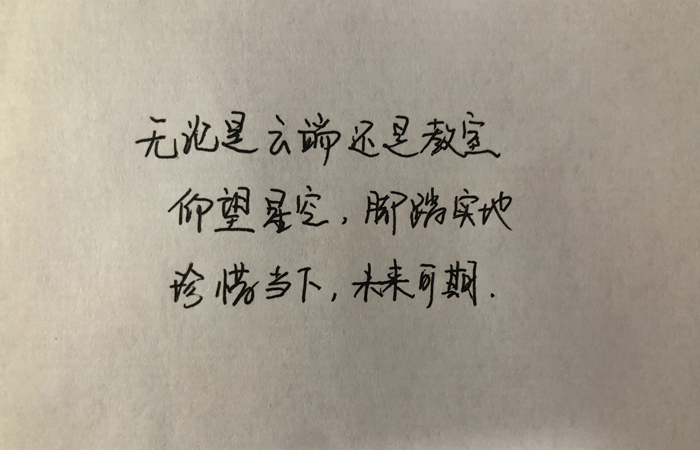 无论是云端还是教室
仰望星空，脚踏实地
珍惜当下，未来可期.